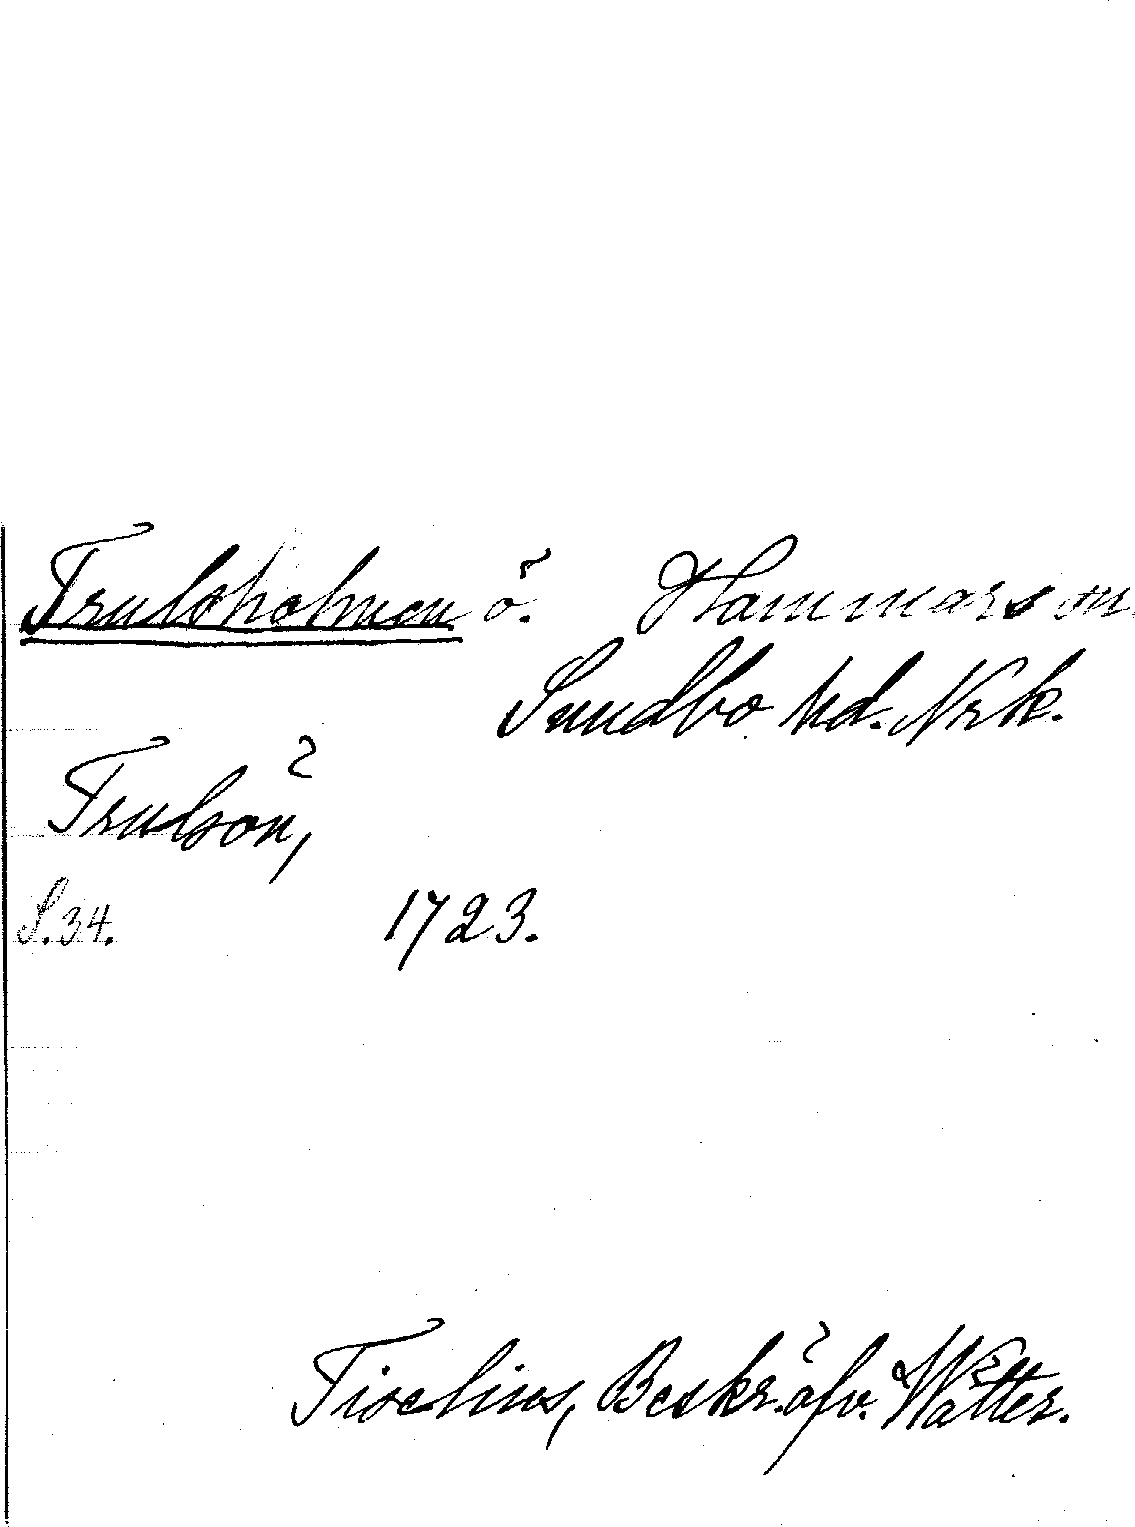 Trulsholmen ö. Hammars sn.
Sundbo hd. Nrk.
Trulsön,
S. 34. 1723.
Tiselius, Beskr. öfv. Wätter.